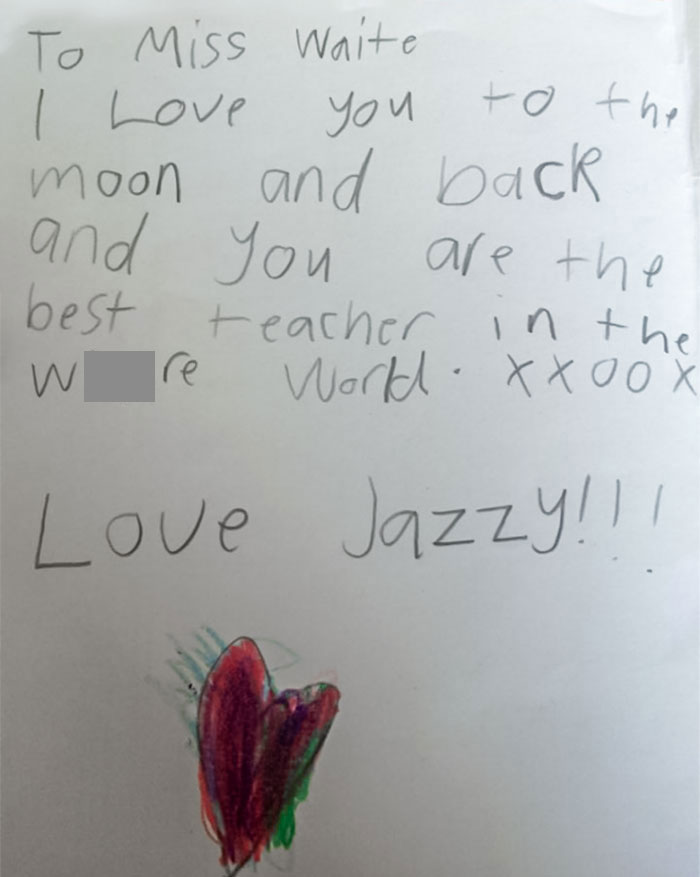 To Miss Waite
I Love you to the
moon and back
and you are the
best teacher in the
World. xxoox
Love Jazzy!!!